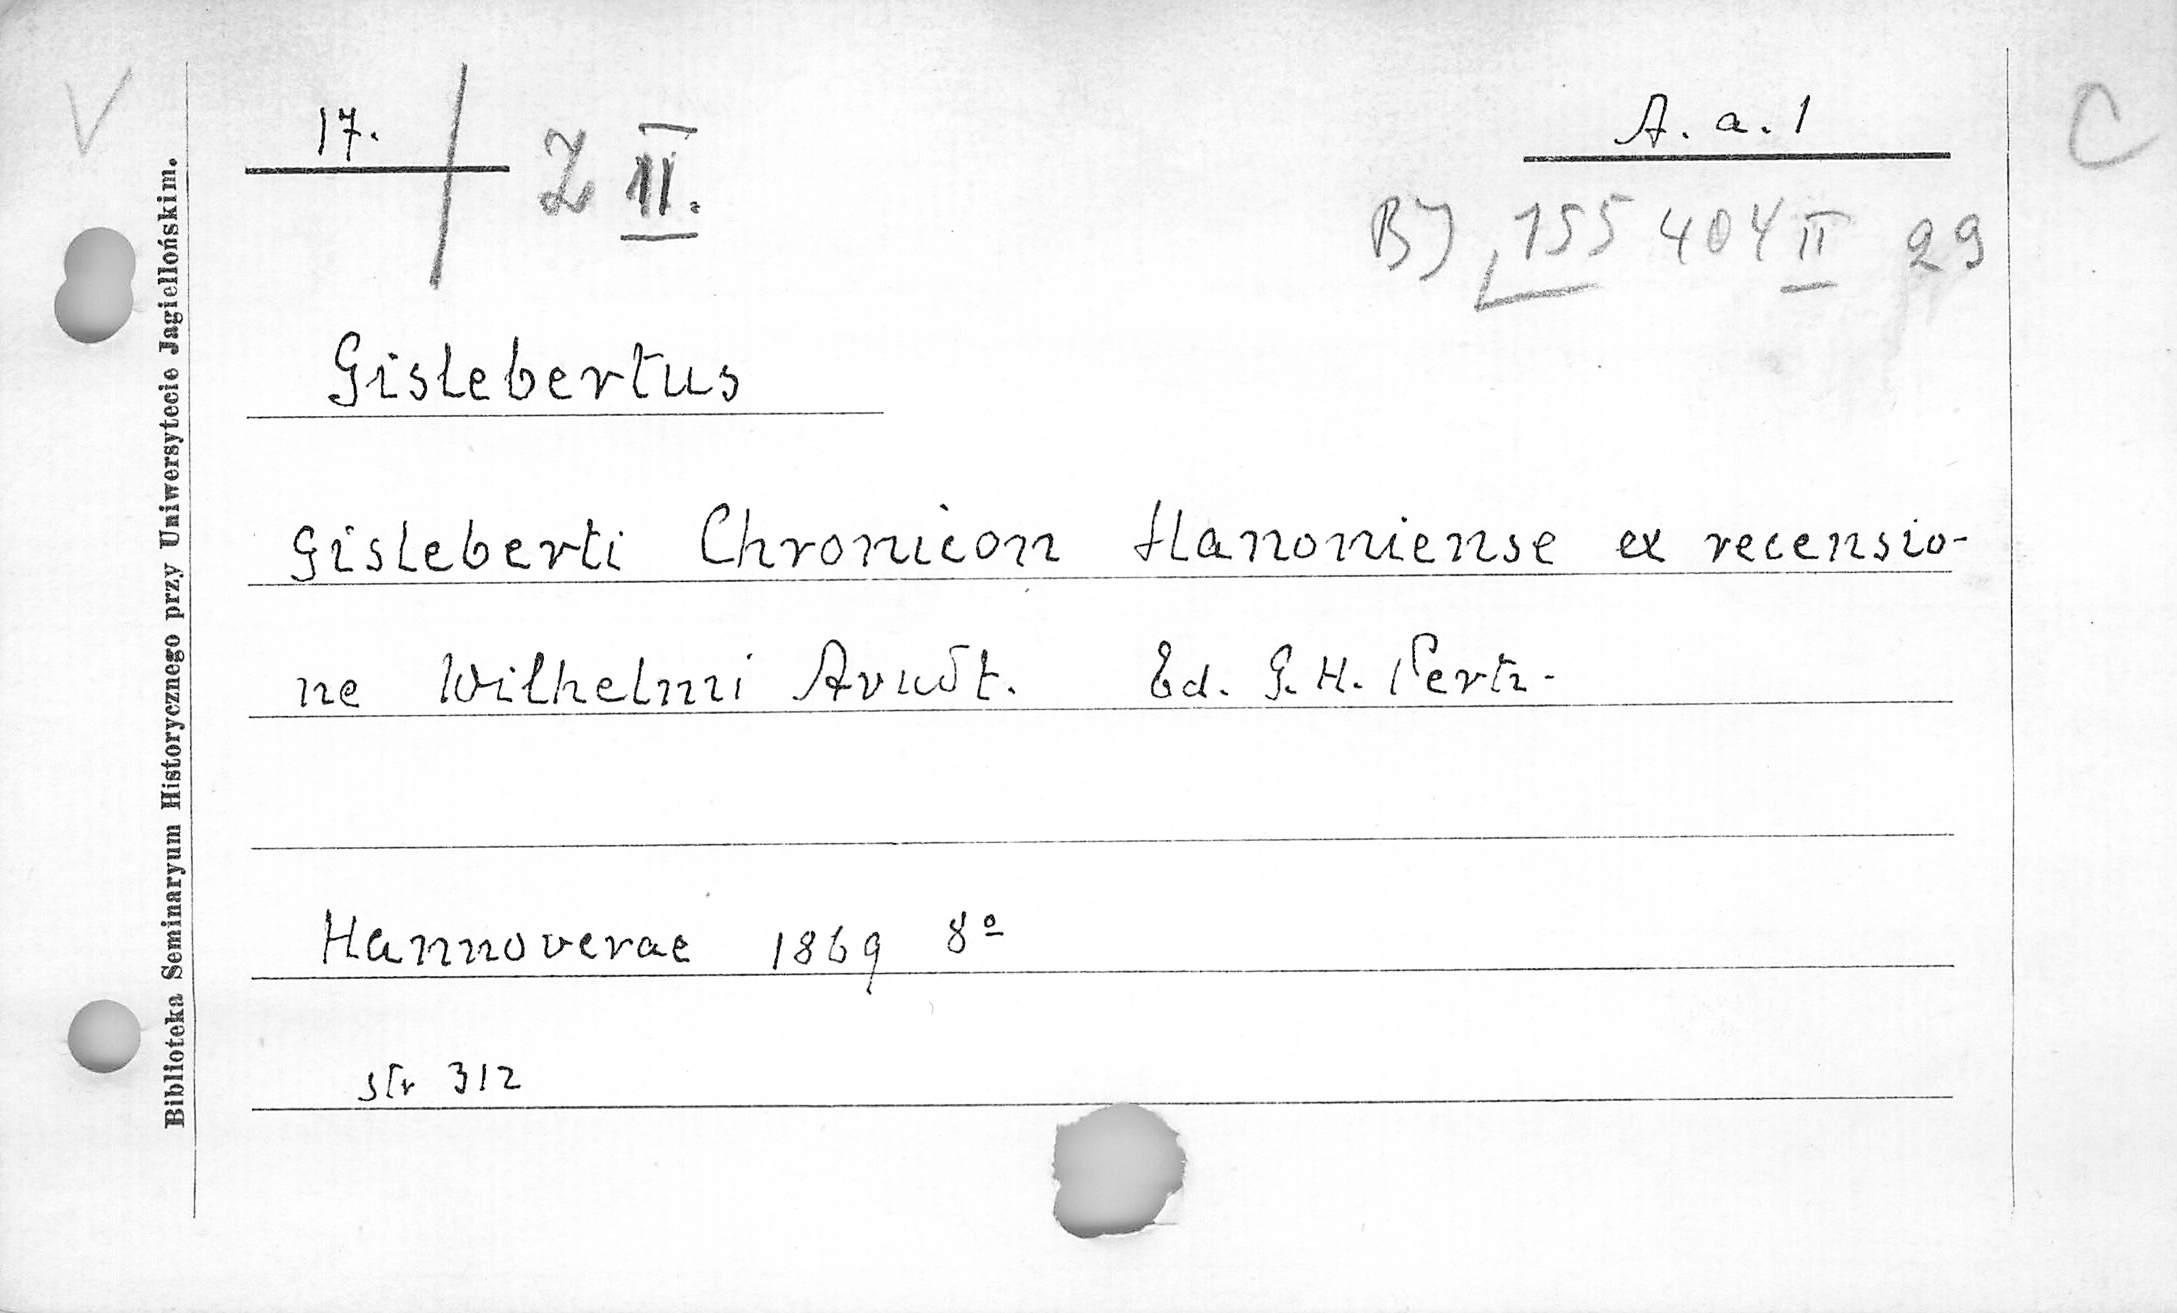 V
17.
A. a. 1
C
Z II.
BJ 155 404 II 29
Gislebertus
Gisleberti Chronicon Hanoniense ex recensio-
ne Wilhelmi Arndt. Ed. G. H. Pertz.
Hannoverae 1869 8º
str 312
Biblioteka Seminaryum Historycznego przy Uniwersytecie Jagiellońskim.